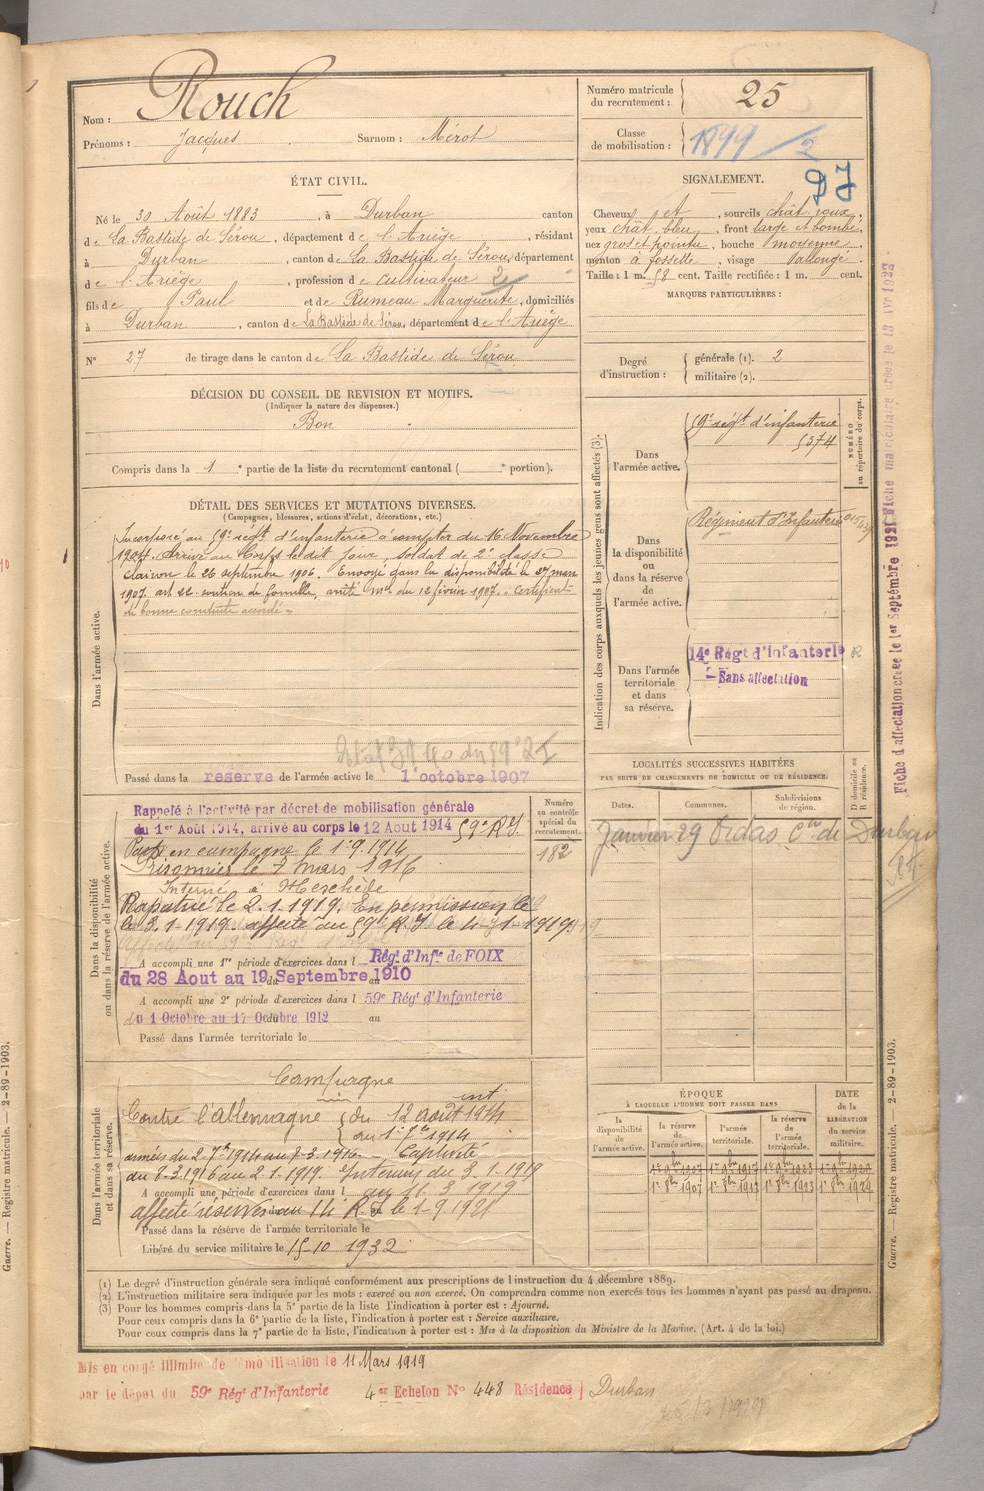 Nom : Rouch
Prénoms : Jacques Surnom : Mérot
Numéro matricule du recrutement : 25
Classe de mobilisation : 1899/2
DJ
ÉTAT CIVIL.
Né le 30 Août 1883, à Durban canton
de La Bastide de Sérou, département de l'Ariège, résidant
à Durban, canton de La Bastide de Sérou, département
de l'Ariège, profession de cultivateur 2
fils de Paul et de Rumeau Marguerite, domiciliés
à Durban, canton de La Bastide de Sérou, département de l'Ariège
N° 27 de tirage dans le canton de La Bastide de Sérou
SIGNALEMENT.
Cheveux , sourcils chât roux,
yeux chât bleu, front large et bombé,
nez gros et pointu, bouche moyenne,
menton à fossette, visage allongé.
Taille : 1 m. 58 cent. Taille rectifiée : 1 m. cent.
MARQUES PARTICULIÈRES :
Degré d'instruction : générale (1). 2
militaire (2).
DÉCISION DU CONSEIL DE REVISION ET MOTIFS.
(Indiquer la nature des dispenses.)
Bon
Compris dans la 1e partie de la liste du recrutement cantonal ( e portion).
DÉTAIL DES SERVICES ET MUTATIONS DIVERSES.
(Campagnes, blessures, actions d'éclat, décorations, etc.)
Dans l'armée active.
Incorporé au 59e régt d'infanterie à compter du 16 Novembre
1904. Arrivé au Corps le dit jour, soldat de 2e classe
Clairon le 26 septembre 1906. Envoyé dans la disponibilité le 27 mars
1907. art 22. soutien de famille, arrêté mel du 12 février 1907. Certificat
de bonne conduite accordé
Passé dans la réserve de l'armée active le 1 octobre 1907
Dans la disponibilité ou dans la réserve de l'armée active.
Numéro au contrôle spécial du recrutement.
182
Rappelé à l'activité par décret de mobilisation générale
du 1er Août 1914, arrivé au corps le 12 Aout 1914 59e R.I.
Parti en campagne le 1.9.1914
Prisonnier le 7 mars 1916
Interné à Meschède
Rapatrié le 2.1.1919. En permission le
le 3.1.1919. affecté au 59e R.I le
A accompli une 1re période d'exercices dans l Régt d'Infie de FOIX
du 28 Aout au 19 Septembre 1910
A accompli une 2e période d'exercices dans l 59e Régt d'Infanterie
du 1 Octobre au 17 Octobre 1912 au
Passé dans l'armée territoriale le
Dans l'armée territoriale et dans sa réserve.
Campagne
int
Contre l'allemagne du 12 août 1914
au 1er 7bre 1914
armées du 2 7bre 1914 au 7-3-1916. Captivité
du 8.3.1916 au 2.1.1919. Intérieur du 3.1.1919
A accompli une période d'exercices dans l
au 11.3.1919
affecté réserves au 14 R.I le 1.9.1921
Passé dans la réserve de l'armée territoriale le
Libéré du service militaire le 15-10 1932
Indication des corps auxquels les jeunes gens sont affectés (3).
NUMÉRO au répertoire du corps.
Dans l'armée active.
59e régt d'infanterie
5374
Dans la disponibilité ou dans la réserve de l'armée active.
Régiment d'Infanterie
Dans l'armée territoriale et dans sa réserve.
14e Régt d'Infanterie R
Sans affectation
LOCALITÉS SUCCESSIVES HABITÉES
PAR SUITE DE CHANGEMENTS DE DOMICILE OU DE RÉSIDENCE.
Dates. Communes. Subdivisions de région. D domicile ou R résidence.
Janvier 29 de Durban
ÉPOQUE
À LAQUELLE L'HOMME DOIT PASSER DANS
la disponibilité de l'armée active. la réserve de l'armée active. l'armée territoriale. la réserve de l'armée territoriale. DATE de la LIBÉRATION du service militaire.
1er 8bre 1907 1er 8bre 1923
Fiche d'affectation créée le 1er Septembre 1921 Fiche matriculaire créée le 13 Avr 1923
Guerre. — Registre matricule. — 2-89-1903.
Guerre. — Registre matricule. — 2-89-1903.
(1) Le degré d'instruction générale sera indiqué conformément aux prescriptions de l'instruction du 4 décembre 1889.
(2) L'instruction militaire sera indiquée par les mots : exercé ou non exercé. On comprendra comme non exercés tous les hommes n'ayant pas passé au drapeau.
(3) Pour les hommes compris dans la 5e partie de la liste l'indication à porter est : Ajourné.
Pour ceux compris dans la 6e partie de la liste, l'indication à porter est : Service auxiliaire.
Pour ceux compris dans la 7e partie de la liste, l'indication à porter est : Mis à la disposition du Ministre de la Marine. (Art. 4 de la loi.)
Mis en congé illimité de démobilisation le 11 Mars 1919
par le dépôt du 59e Régt d'Infanterie 4er Echelon N° 448 Résidence } Durban